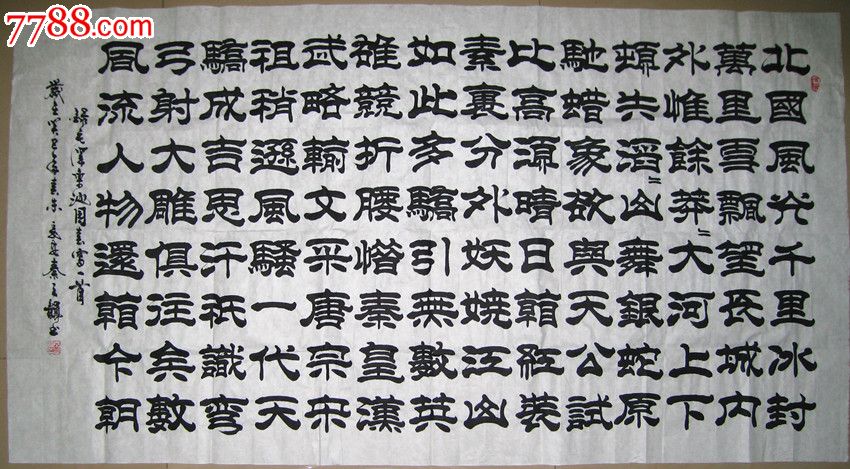 7788.com
北國風光千里冰封
萬里雪飄望長城內
外惟餘莽〻大河上下
頓失滔〻山舞銀蛇原
馳蜡象欲與天公試
比高須晴日看紅裝
素裹分外妖嬈江山
如此多驕引無數英
雄競折腰惜秦皇漢
武略輸文采唐宗宋
祖稍遜風騷一代天
驕成吉思汗祇識彎
弓射大雕俱往矣數
風流人物還看今朝
錄毛澤東沁園春雪一首
歲在癸巳年春末 秦 書